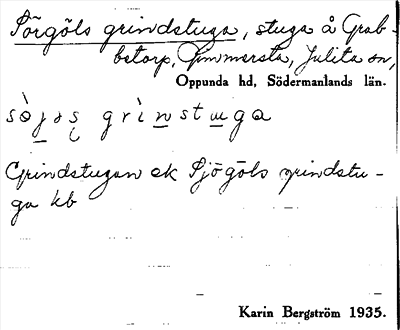 Sörgöls grindstuga, stuga å Grab-
betorp, Gimmersta, Julita sn,
Oppunda hd, Södermanlands län.
sòjəs grìnstuga
Grindstugan ek Sjögöls grindstu-
ga kb
Karin Bergström 1935.